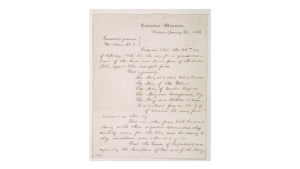 Executive Mansion,
Washington, January 27, 1862
President's general
War Order No. 1
Ordered that the 22nd day
of February 1862, be the day for a general move-
ment of the Land and Naval forces of the United
States against the insurgent forces.
That especially
The Army at & about, Fortress Monroe
The Army of the Potomac
The Army of Western Virginia
The Army near Munfordsville, Ky
The Army and Flotilla at Cairo
And a Naval force in the Gulf
of Mexico, be ready for a
movement on that day.
That all other forces, both Land and
Naval, with their respective commanders, obey
existing orders, for the time, and be ready to
obey additional orders when duly given.
That the Heads of Departments, and
especially the Secretaries of War and of the Navy